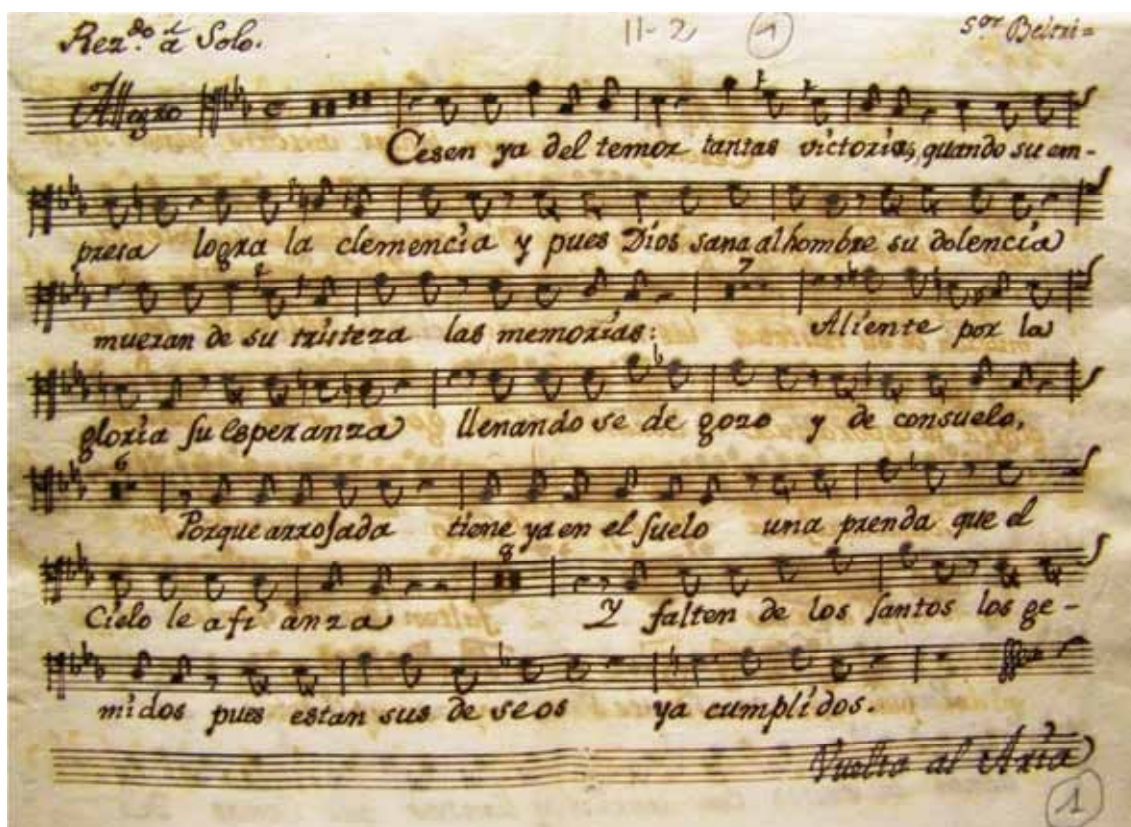 Rez.do á Solo. 11-2 1 S.or Beltri=
Allegro
Cesen ya del temor tantas victorias, quando su em-
presa logra la clemencia y pues Dios sana al hombre su dolencia
7
mueran de su tristeza las memorias: Aliente por la
gloria su esperanza llenando se de gozo y de consuelo,
6
Porque arrojada tiene ya en el suelo una prenda que el
8
Cielo le afi anza Y falten de los santos los ge-
midos pues estan sus de seos ya cumplidos.
Vuelta al Aria
1